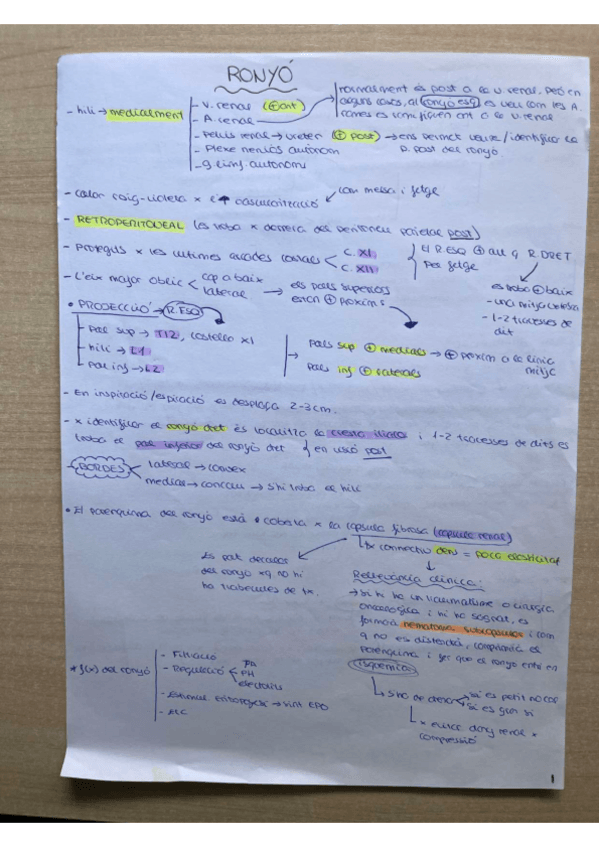 RONYÓ
- hili → medialment
- V. renal (⊕ant)
- A. renal
normalment és post a la v. renal. Però en
alguns casos, al ronyó esq es veu com les A.
rames es ramifiquen ant a la v. renal
- Pelvis renal → urèter (⊕ post) → ens permet veure/identificar la
p. post del ronyó
- Plexe nerviós autònom
- g limf. autonoms
- Color roig-violeta x l'↑ vascularització
com melsa i fetge
- RETROPERITONEAL (es troba x darrera del peritoneu parietal post)
- Protegits x les ultimes arcades costals
C. XI
C. XII
el R.ESQ ⊕ alt q R.DRET
Per fetge
es troba ⊕ baix
- una mitja costella
- 1-2 travesses de
dit
- L'eix major oblic
cap a baix
lateral
→ els pols superiors
estan ⊕ pròxims
• PROJECCIÓ → R.ESQ
- Pol sup → T12, costella XI
- hili → L1
- Pol inf → L2
→ pols sup ⊕ medials → ⊕ pròxim a la línia
mitja
pols inf ⊕ laterals
- En inspiració/espiració es desplaça 2-3cm.
- x identificar el ronyó dret es localitza la cresta iliaca i 1-2 travesses de dits es
troba el pol inferior del ronyó dret } en visió post
- BORDES
lateral → convex
medial → concau → s'hi troba el hili
• El parènquima del ronyó està coberta x la capsula fibrosa (capsula renal)
↳ tx connectiu dens = poca elasticitat
Es pot decapsular
del ronyó xq no hi
ha trabecules de tx.
Rellevància clínica:
→ si hi ha un traumatisme o cirurgia
oncològica i hi ha sagnat, es
formarà hematoma subcapsular i com
q no es distendrà, comprimirà el
parènquima i fer que el ronyó entri en
isquemia
↳ s'ha de drenar
si es petit no cal
si es gran sí
↳ x evitar dany renal x
compressió
* f(x) del ronyó
- Filtració
- Regulació
PA
PH
electrolits
- Estimul eritropoyesi → sint EPO
- etc
1